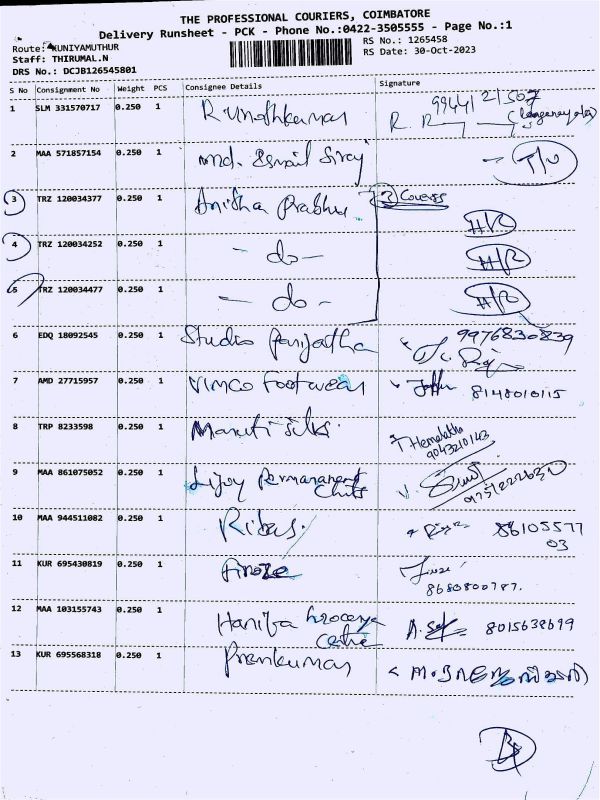 THE PROFESSIONAL COURIERS, COIMBATORE
Delivery Runsheet - PCK - Phone No.:0422-3505555 - Page No.:1
Route: KUNIYAMUTHUR
RS No.: 1265458
Staff: THIRUMAL.N
RS Date: 30-Oct-2023
DRS No.: DCJB126545801
S No Consignment No Weight PCS Consignee Details Signature
1 SLM 331570717 0.250 1 R. Vinothkumar
2 MAA 571857154 0.250 1 Md. Ismail Siraj
3 TRZ 120034377 0.250 1 Anitha Prabhu 3 Covers
4 TRZ 120034252 0.250 1 - do -
5 TRZ 120034477 0.250 1 - do -
6 EDQ 18092545 0.250 1 Studio Parijatha 9976830839
7 AMD 27715957 0.250 1 Vimco Footwear 8148010115
8 TRP 8233598 0.250 1 Maruti Silks. Hemalatha
9043210143
9 MAA 861075052 0.250 1 Lijoy Permanent
Chits
10 MAA 944511082 0.250 1 Ribas. 86105577
03
11 KUR 695430819 0.250 1 Firoze
8680800787.
12 MAA 103155743 0.250 1 Hanifa Grocery
Centre 8015638699
13 KUR 695568318 0.250 1 Premkumar